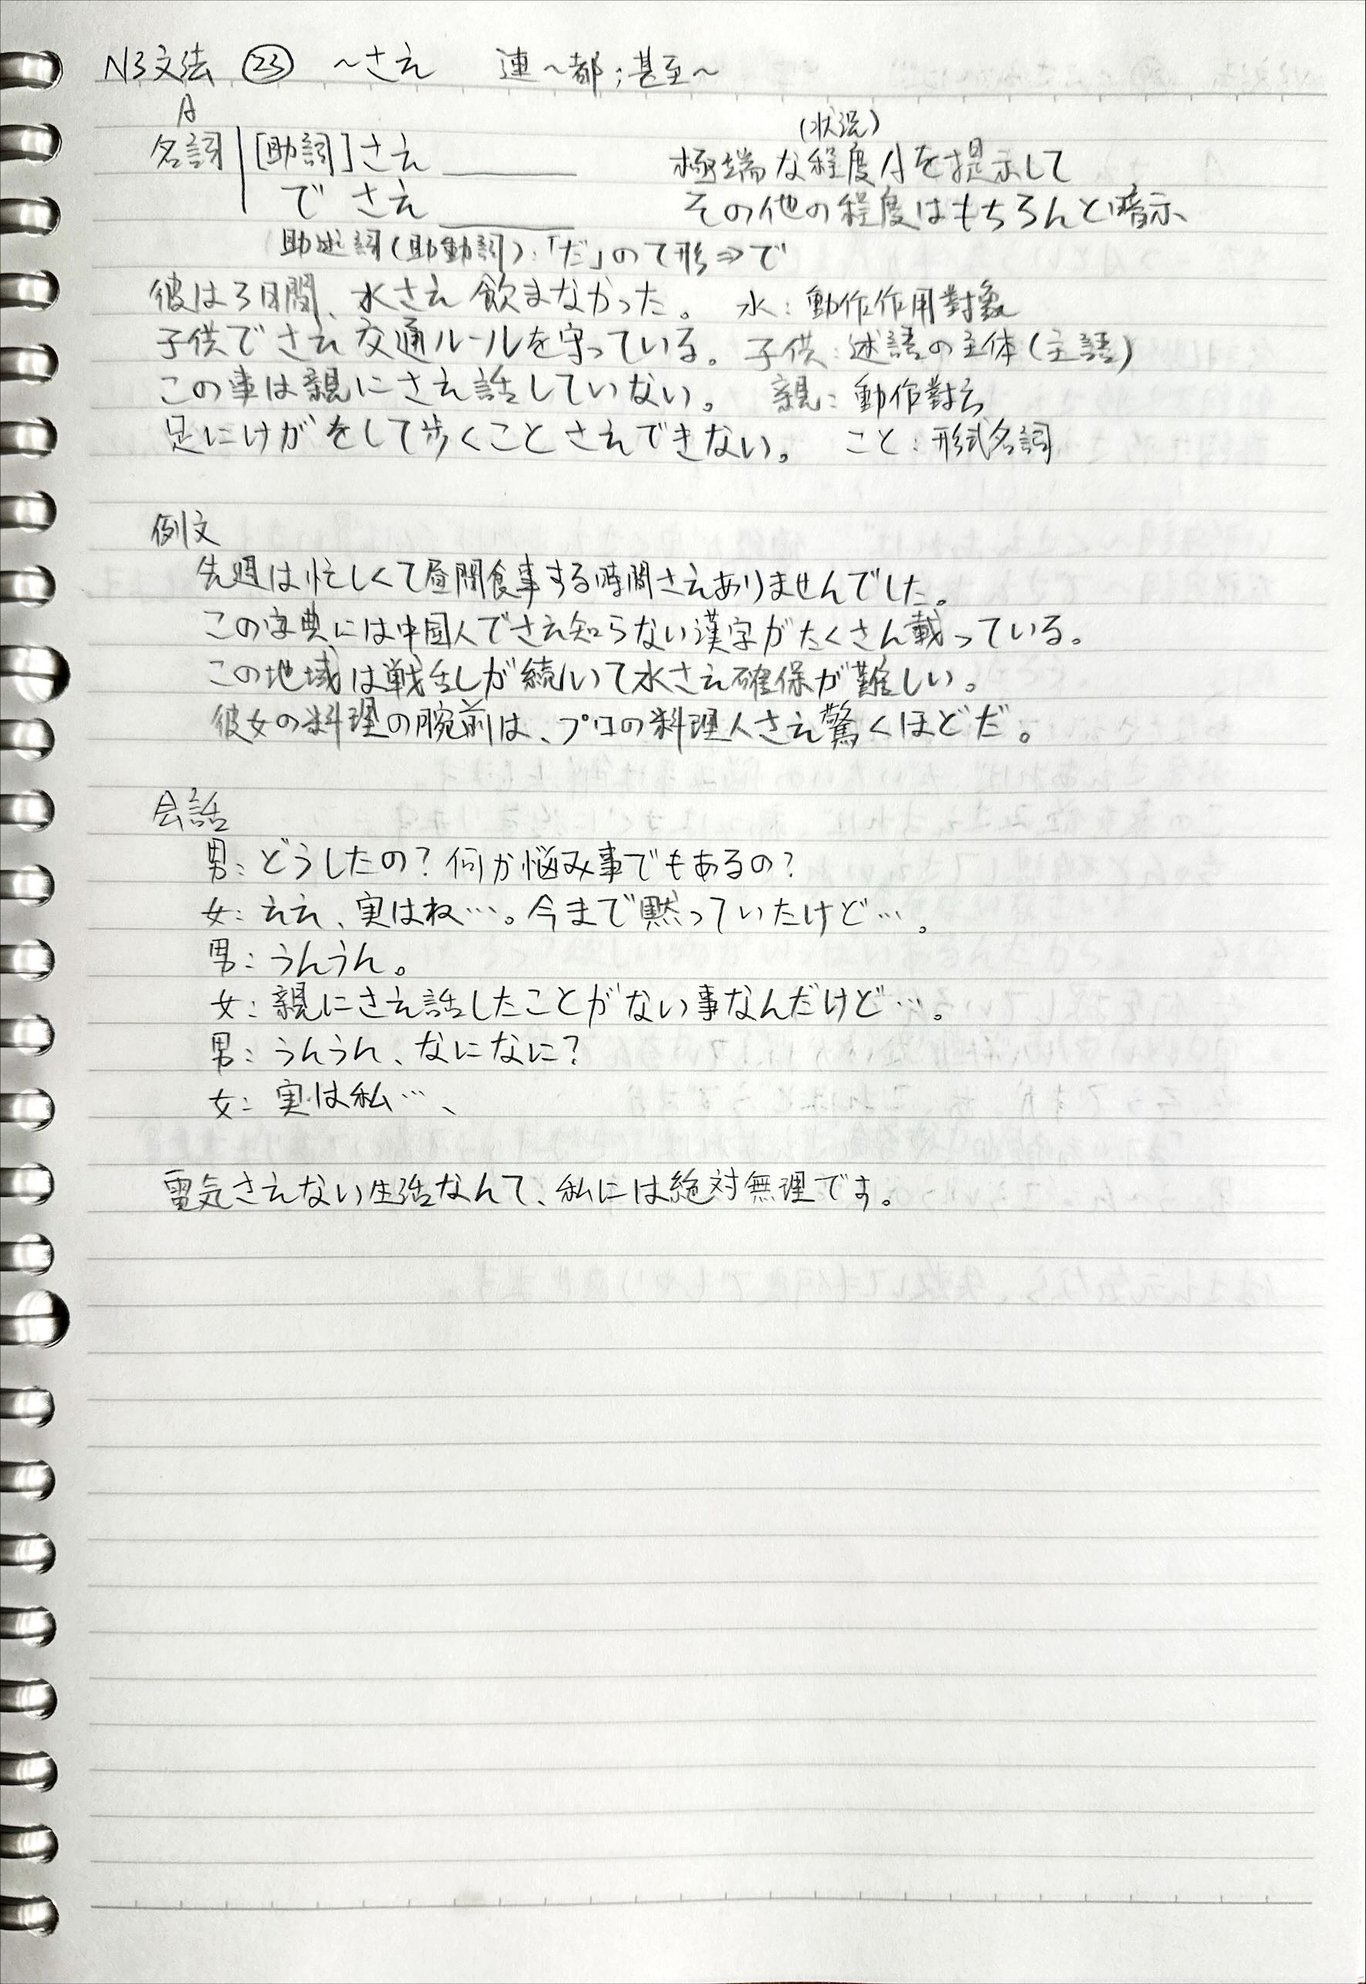 N3文法 ㉓ ～さえ 連～都；甚至～
A
名詞 [助詞]さえ ______ (状況)
極端な程度Aを提示して
でさえ ______ その他の程度はもちろんと暗示
助述詞(助動詞):「だ」のて形⇒で
彼は3日間、水さえ飲まなかった。 水：動作作用對象
子供でさえ交通ルールを守っている。 子供：述語の主体(主語)
この事は親にさえ話していない。 親：動作對
足にけがをして歩くことさえできない。 こと：形式名詞
例文
先週は忙しくて昼間食事する時間さえありませんでした。
この字典には中国人でさえ知らない漢字がたくさん載っている。
この地域は戦乱が続いて水さえ確保が難しい。
彼女の料理の腕前は、プロの料理人さえ驚くほどだ。
会話
男：どうしたの？何か悩み事でもあるの？
女：ええ、実はね…。今まで黙っていたけど…。
男：うんうん。
女：親にさえ話したことがない事なんだけど…。
男：うんうん、なになに？
女：実は私…、
電気さえない生活なんて、私には絶対無理です。